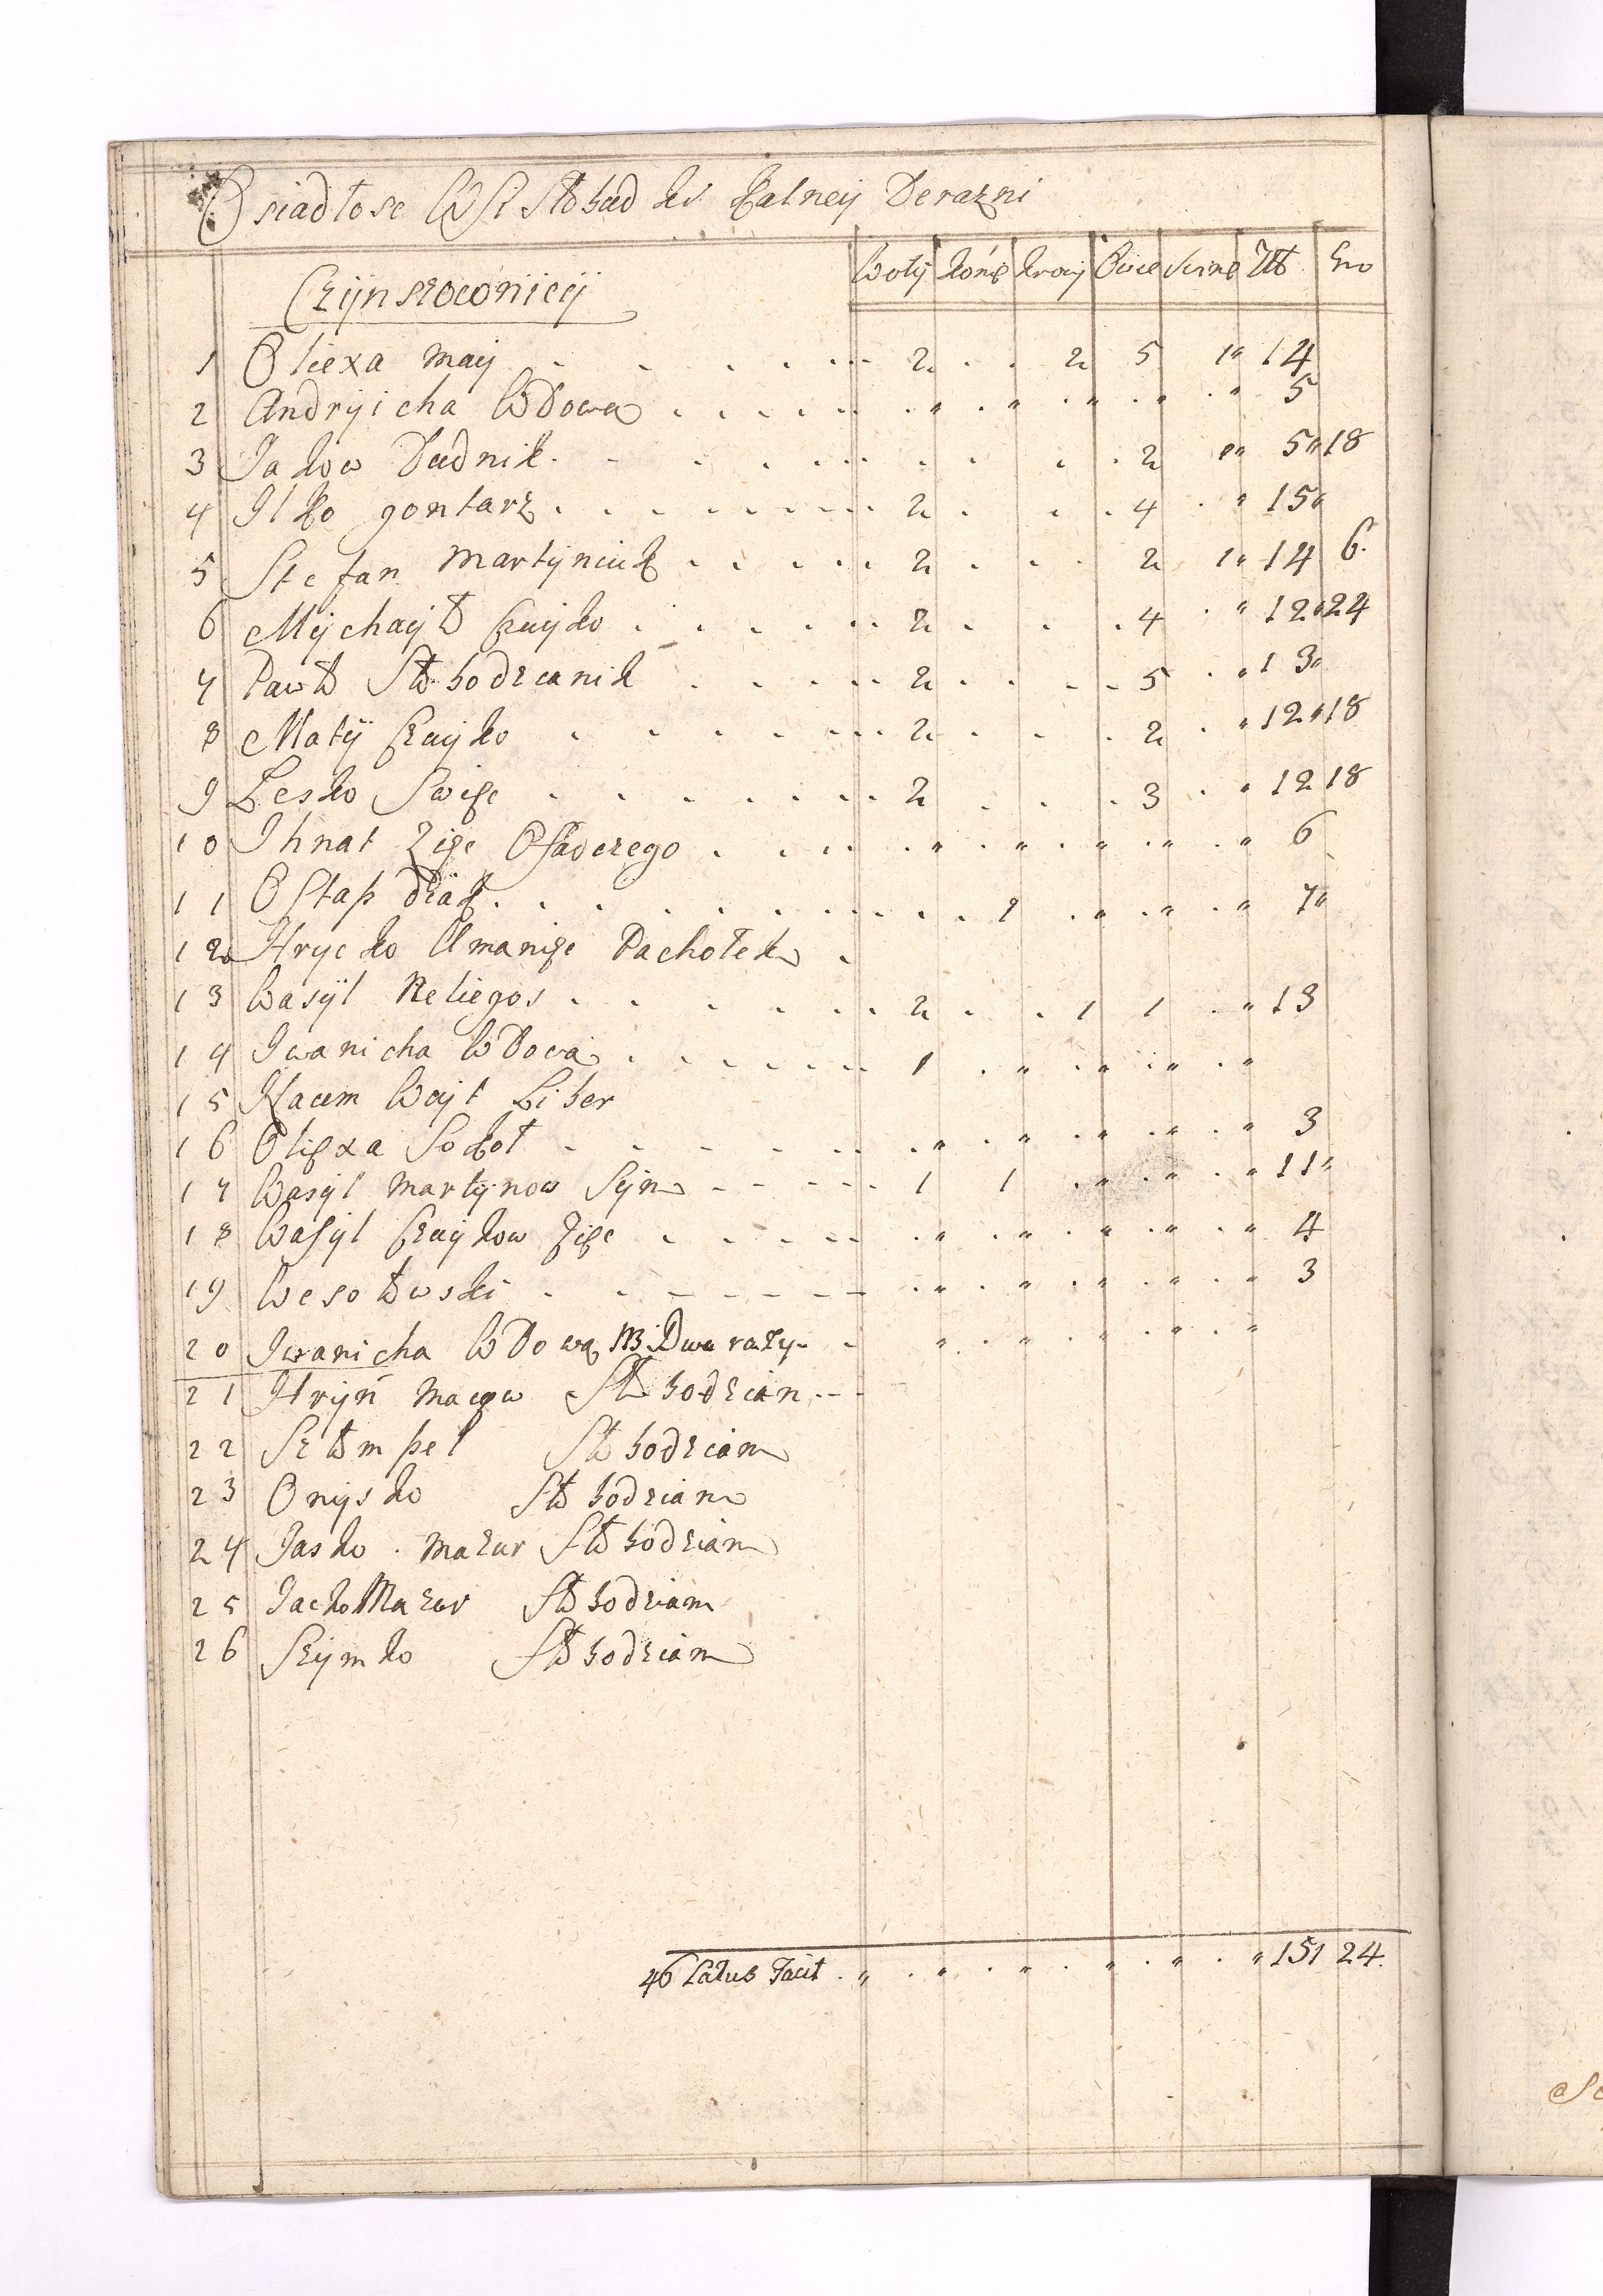 Osiadłosc WSi Słobud ki Kalney Derazni
Czÿnszownicÿ Wołÿ Konie Krowÿ Owce Swine Złł Gro
1 Olexa maÿ 2 . . 2 5 1" 14
2 Andryicha Wdowa . " . " . " . " . " 5
3 Jakow Dudnik . . . . 2 " 5 " 18
4 Ilko gontarz 2 . . . 4 . " 15 "
5 Stefan Martÿniuk 2 . . . 2 1" 14 6.
6 Mÿchayło Czuÿko 2 . . . 4 . " 12 " 24
7 Pawło Słobodzianik 2 . . . 5 . " 13 "
8 Matÿ Czuÿko 2 . . . 2 . " 12 " 18
9 Lesko 2 . . . 3 . " 12 18
10 Ihnat Zięc Osadczego . " . " . " . " . " 6
11 Ostap diak . . . 1 . " . " . " 7 "
12 Hrycko Umaniec Pachołek
13 Wasÿl Reliegos 2 . . 1 1 . " 13
14 Iwanicha Wdowa 1 . " . " . " . "
15 Naum Woyt Liber
16 Olexa Sokoł . " . " . " . " . " 3
17 Wasÿl Martÿnow Sÿn 1 1 . " . " . " 11 "
18 Wasÿl Czuÿkow Zięc . " . " . " . " . " 4
19 Wesołowski . " . " . " . " . " 3
20 Iwanicha Wdowa NB. Dwa razy " . " . " . " . "
21 Hryń Słobodzian
22 Szłompel Słobodzian
23 Onÿsko Słobodzian
24 Jasko Mazur Słobodzian
25 Jacko Mazur Słobodzian
26 Szÿmko Słobodzian
46 Latus Facit . " . " . " . " . " . " 151 24.